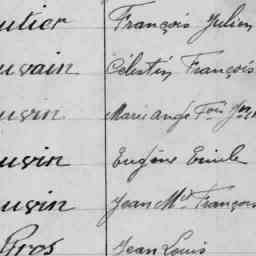 utier François Julien
uvain Célestin François
uvin Marie Ange Fois
uvin Eugène Emile
uvin Jean Mie François
Gros Jean Louis